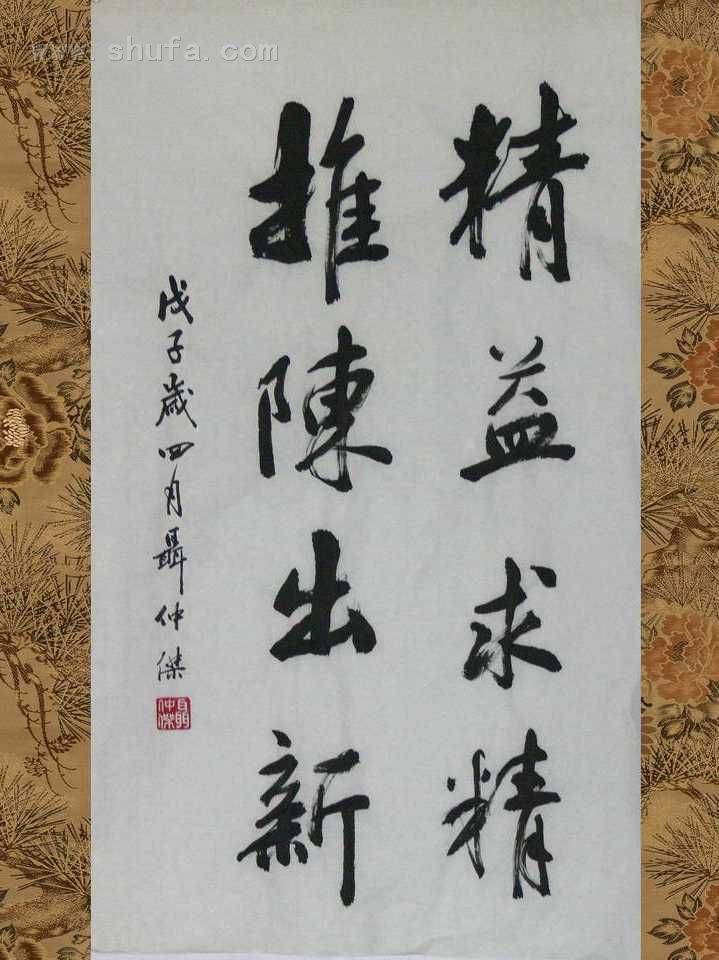 www.shufa.com
精益求精
推陳出新
戊子歲四月聶仲傑
聶仲傑